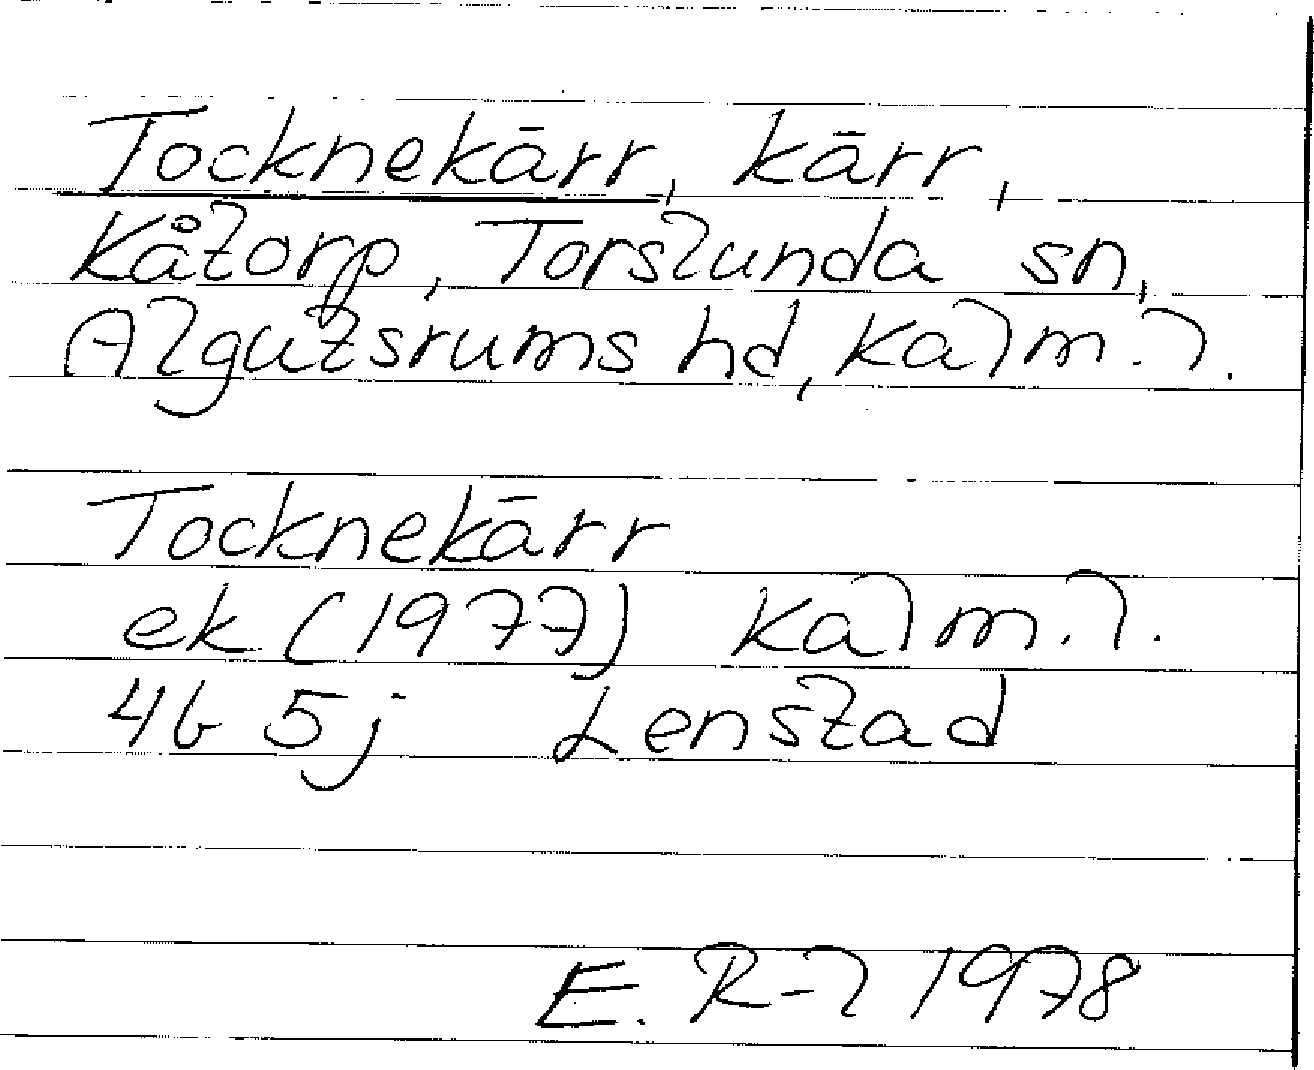 Tocknekärr, kärr,
Kåtorp, Torslunda sn,
Algutsrums hd, Kalm. l.
Tocknekärr
ek (1977) Kalm. l.
4G 5j Lenstad
E. R-l 1978